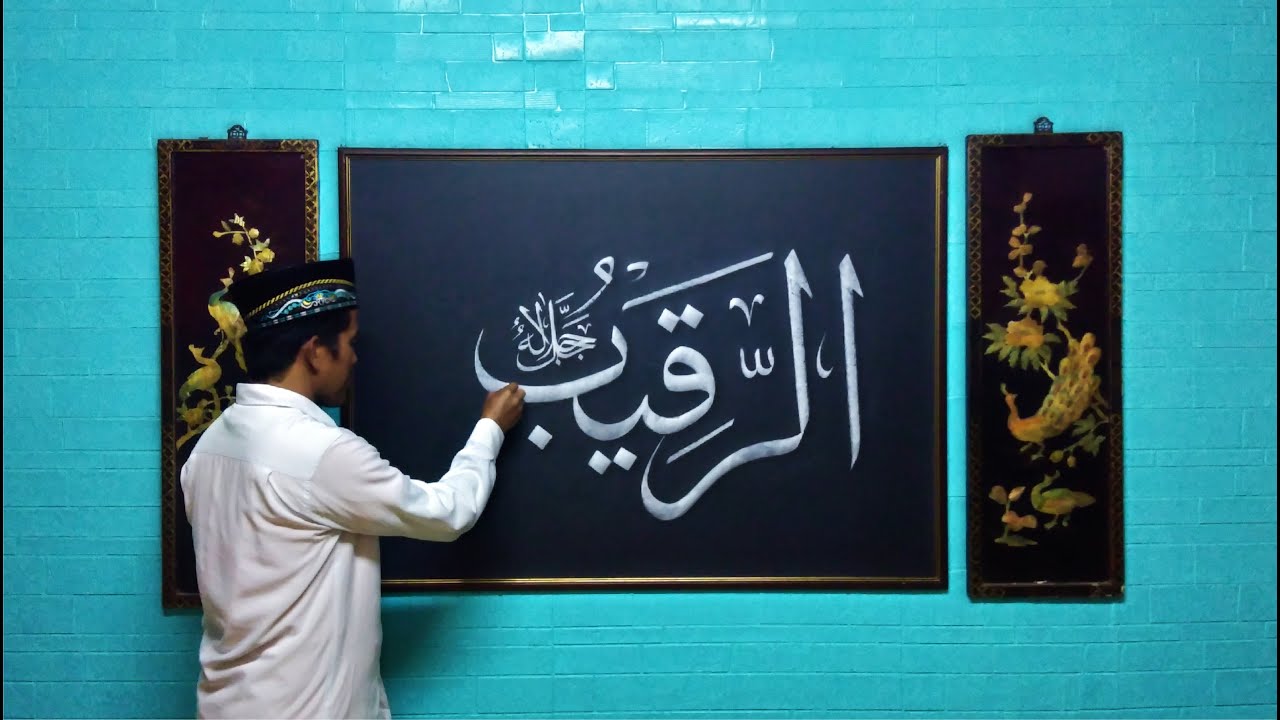 الرَّقِيْبُ
جَلَّ جَلَالُهُ